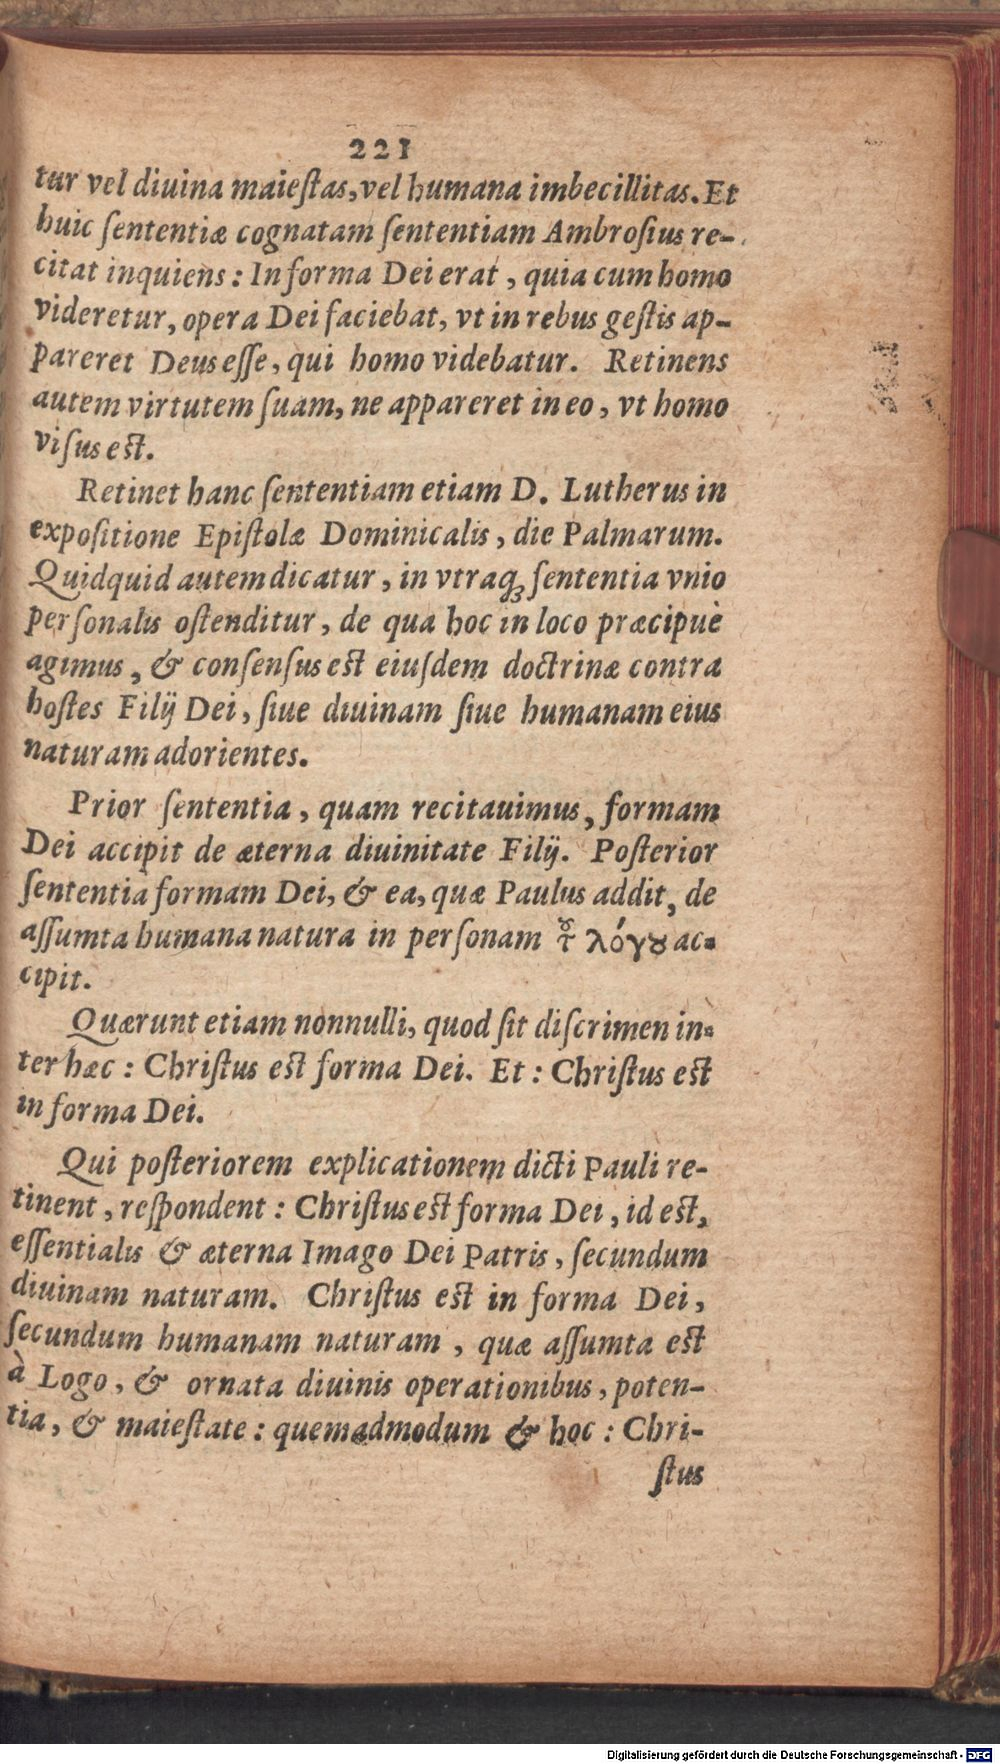 221
tur vel diuina maieſtas, vel humana imbecillitas. Et
huic ſententiæ cognatam ſententiam Ambroſius re-
citat inquiens: In forma Dei erat, quia cum homo
videretur, opera Dei faciebat, vt in rebus geſtis ap-
pareret Deus eſſe, qui homo videbatur. Retinens
autem virtutem ſuam, ne appareret in eo, vt homo
viſus eſt.
Retinet hanc ſententiam etiam D. Lutherus in
expoſitione Epiſtolæ Dominicalis, die Palmarum.
Quidquid autem dicatur, in vtraqꝫ ſententia vnio
perſonalis oſtenditur, de qua hoc in loco præcipuè
agimus, & conſenſus eſt eiuſdem doctrinæ contra
hoſtes Filij Dei, ſiue diuinam ſiue humanam eius
naturam adorientes.
Prior ſententia, quam recitauimus, formam
Dei accipit de æterna diuinitate Filij. Poſterior
ſententia formam Dei, & ea, quæ Paulus addit, de
aſſumta humana natura in perſonam τȣ͂ λόγȣ ac-
cipit.
Quærunt etiam nonnulli, quod ſit diſcrimen in-
ter hæc: Chriſtus eſt forma Dei. Et: Chriſtus eſt
in forma Dei.
Qui poſteriorem explicationem dicti Pauli re-
tinent, reſpondent: Chriſtus eſt forma Dei, id eſt,
eſſentialis & æterna Imago Dei Patris, ſecundum
diuinam naturam. Chriſtus eſt in forma Dei,
ſecundum humanam naturam, quæ aſſumta eſt
à Logo, & ornata diuinis operationibus, poten-
tia, & maieſtate: quemadmodum & hoc: Chri-
ſtus
Digitalisierung gefördert durch die Deutsche Forschungsgemeinschaft - DFG